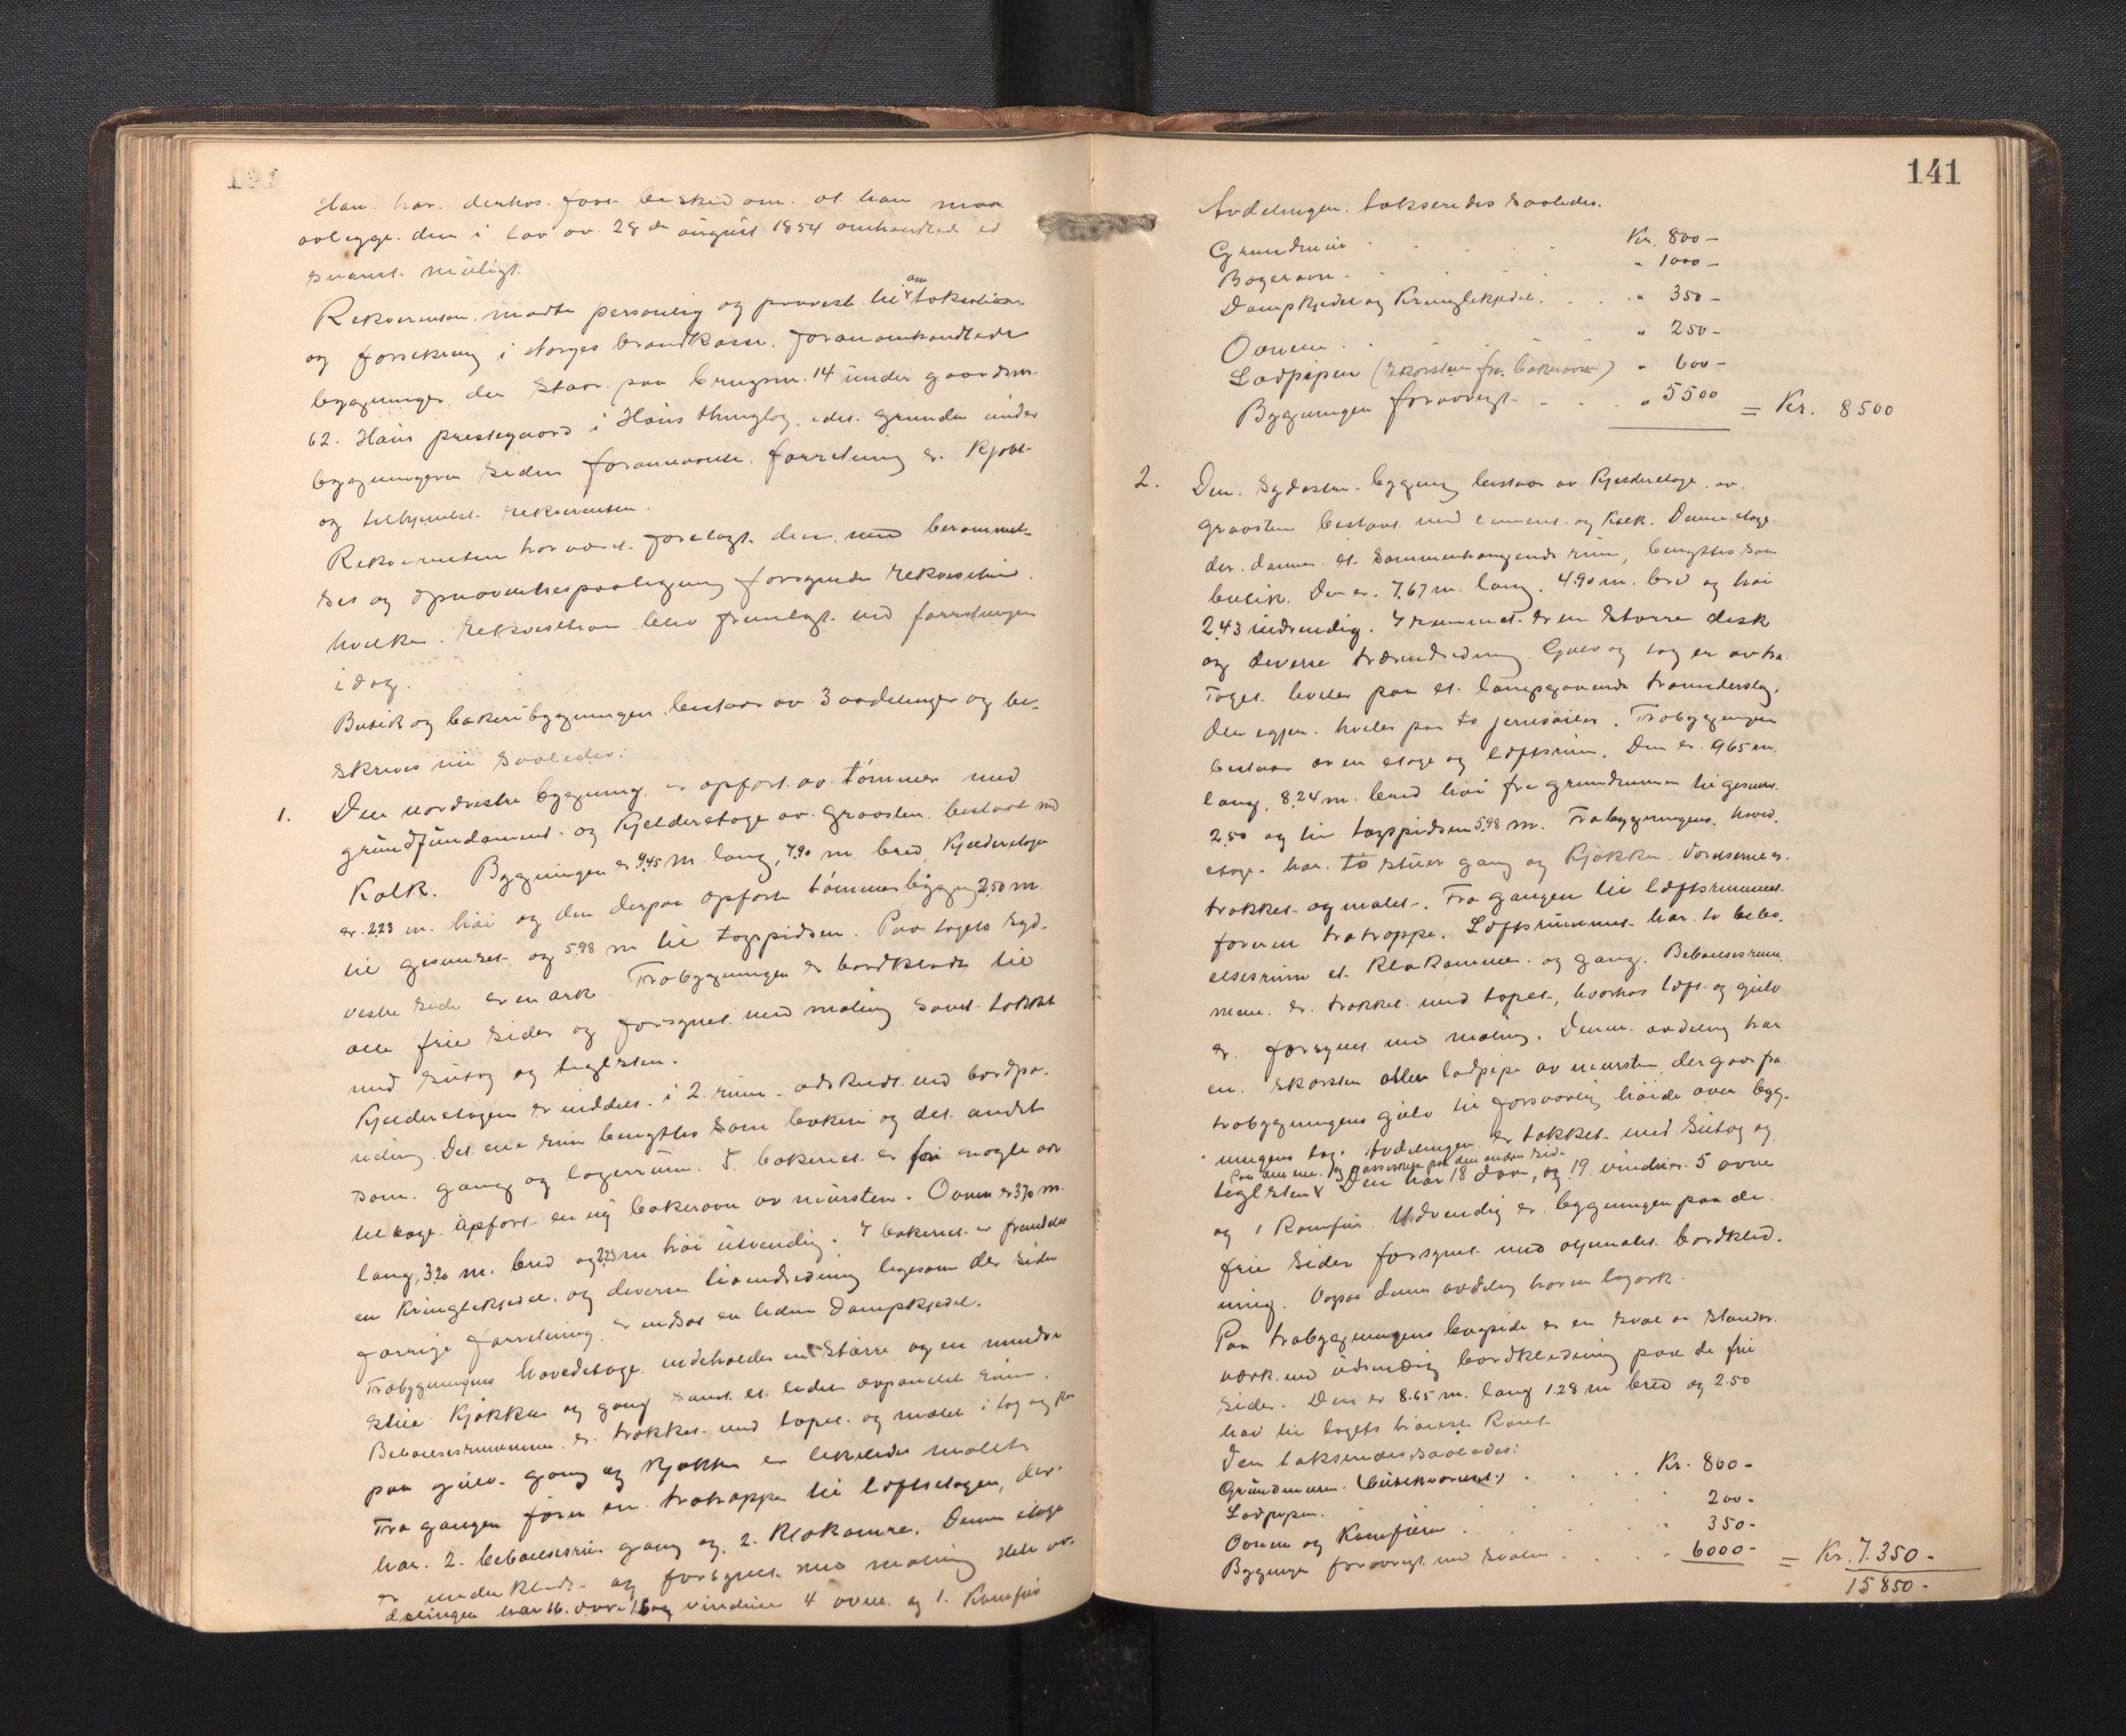 Han har derhos faat besked om at han maa
avlegge den i lov av 28de august 1854 omhandlede ed
snarest muligt.
Rekvirenten mødte personlig og paaviste til omtaksation
og forsikring i Norges brandkasse foranomhandlede
bygninger der staar paa bruksnr. 14 under gaardsnr.
62. Haus prestegaard i Haus thinglag, idet grunden under
bygningerne siden foranværende forretning er kjøbt
og tilhjemlet rekvirenten.
Rekvirenten har været forelagt den med berammel-
ses og opnævnelsespaategning forsynede rekvisition
hvilken rekvisition blev fremlagt ved forretningen
idag.
Butik og bakeribygningen bestaar av 3 avdelinger og be-
skrives nu saaledes:
1. Den nordvestre bygning er opført av tømmer med
grundfundament og kjelderetage av graasten bestaat med
Kalk. Bygningen er 9,45 m. lang, 7,90 m bred, Kjelderetagen
er 2,23 m. høi og den derpaa opførte tømmerbygning 2,50 m.
til gesimset og 5,98 m til tagspidsen. Paa tagets syd-
vestre side er en ark. Træbygningen er bordklædt til
alle frie sider og forsynet med maling samt tækket
med sutag og teglsten.
Kjelderetagen er inddelt i 2 rum adskildt med bordpa-
neling. Det ene rum benyttes som bakeri og det andet
som gang og lagerrum. I bakeriet er for nogle aar
tilbage opført en ny bakerovn av mursten. Ovnen er 3,70 m.
lang, 3,20 m. bred og 2,23 m. høi utvendig. I bakeriet er fremdeles
en Kringlekjedel og diverse træindredning ligesom der siden
forrige forretning er indsat en liden dampkjedel.
Træbygningens hovedetage indeholder en større og en mindre
stue Kjøkken og gang samt et lidet avpanelet rum.
Beboelsesrummene er trækket med tapet og malet i tag og
paa gulv. gang og Kjøkken er likeledes malet.
Fra gangen fører en trætrappe til loftsetagen, der
har 2 beboelsesrum gang og 2 Klækamre. Denne etage
er underklædt og forsynet med maling. Hele av-
delingen har 16 døre 15 vinduer 4 ovne og 1 Komfur
141
Avdelingen takseredes saaledes.
Grundmur . . . Kr. 800 –
Bageravn . . . " 1000 –
Dampkjedel og Kringlekjedel . . . " 350 –
Ovnene . . . " 250 –
Ladpipen (skorsten fra bakerovnen) " 600 –
Bygningen forøvrigt . . . " 5500 = Kr. 8500
2. Den sydøstre bygning bestaar av Kjelderetage av
graasten bestaat med cement og kalk. Denne etage
der danner et sammenhængende rum, benyttes som
butik. Den er 7,67 m. lang, 4,90 m. bred og høi
2,43 indvendig. I rummet er en større disk
og diverse træindredning. Gulv og tag er av træ.
Taget hviler paa et langsgaaende træunderslag,
der igjen hviler paa to jernsøiler. Træbygningen
bestaar av en etage og loftsrum. Den er 9,65 m.
lang, 8,24 m. bred høi fra grundmuren til gesims
2,50 og til tagspidsen 5,98 m. Træbygningens hoved-
etage har to stuer gang og Kjøkken. Værelserne er
trækket og malet. Fra gangen til loftsrummet
fører en trætrappe. Loftsrummet har to bebo-
elsesrum et Klækammer og gang. Beboelsesrum-
mene er trækket med tapet, hvorhos loft og gulv
er forsynet med maling. Denne avdeling har
en skorsten eller ladpipe av mursten der gaar fra
træbygningens gulv til forsvarlig høide over byg-
ningens tag. Avdelingen er tækket med sutag og
paa den ene og passerstein paa den anden side
teglsten Den har 18 døre, og 19 vinduer 5 ovne
og 1 Komfur. Udvendig er bygningen paa de
frie sider forsynet med oljemalet bordklæd-
ning. Ogsaa denne avdeling har en tagark.
Paa træbygningens bagside er en sval av stænder-
værk med udvendig bordklædning paa de frie
sider. Den er 8.65 m. lang 1.28 m bred og 2.50
høi til tagets høieste Kant
Den takseredes saaledes:
Grundmuren (butikvarelset) . . . Kr. 800 –
Ladpipen . . . 200 –
Ovnene og Komfuren . . . " 350 –
Bygningen forøvrigt med svalen . . . " 6000 – = Kr. 7.350 –
15850 –